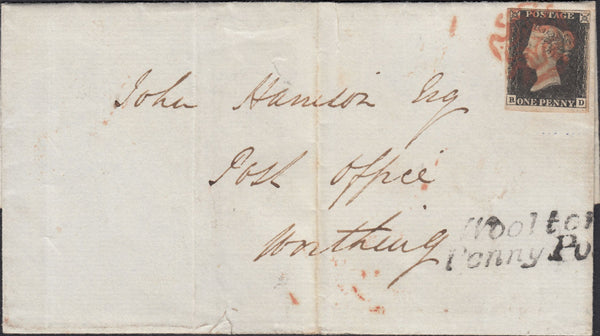 POSTAGE
R ONE PENNY D
John Harrison Esq
Post Office
Worthing
Woolton
Penny Po